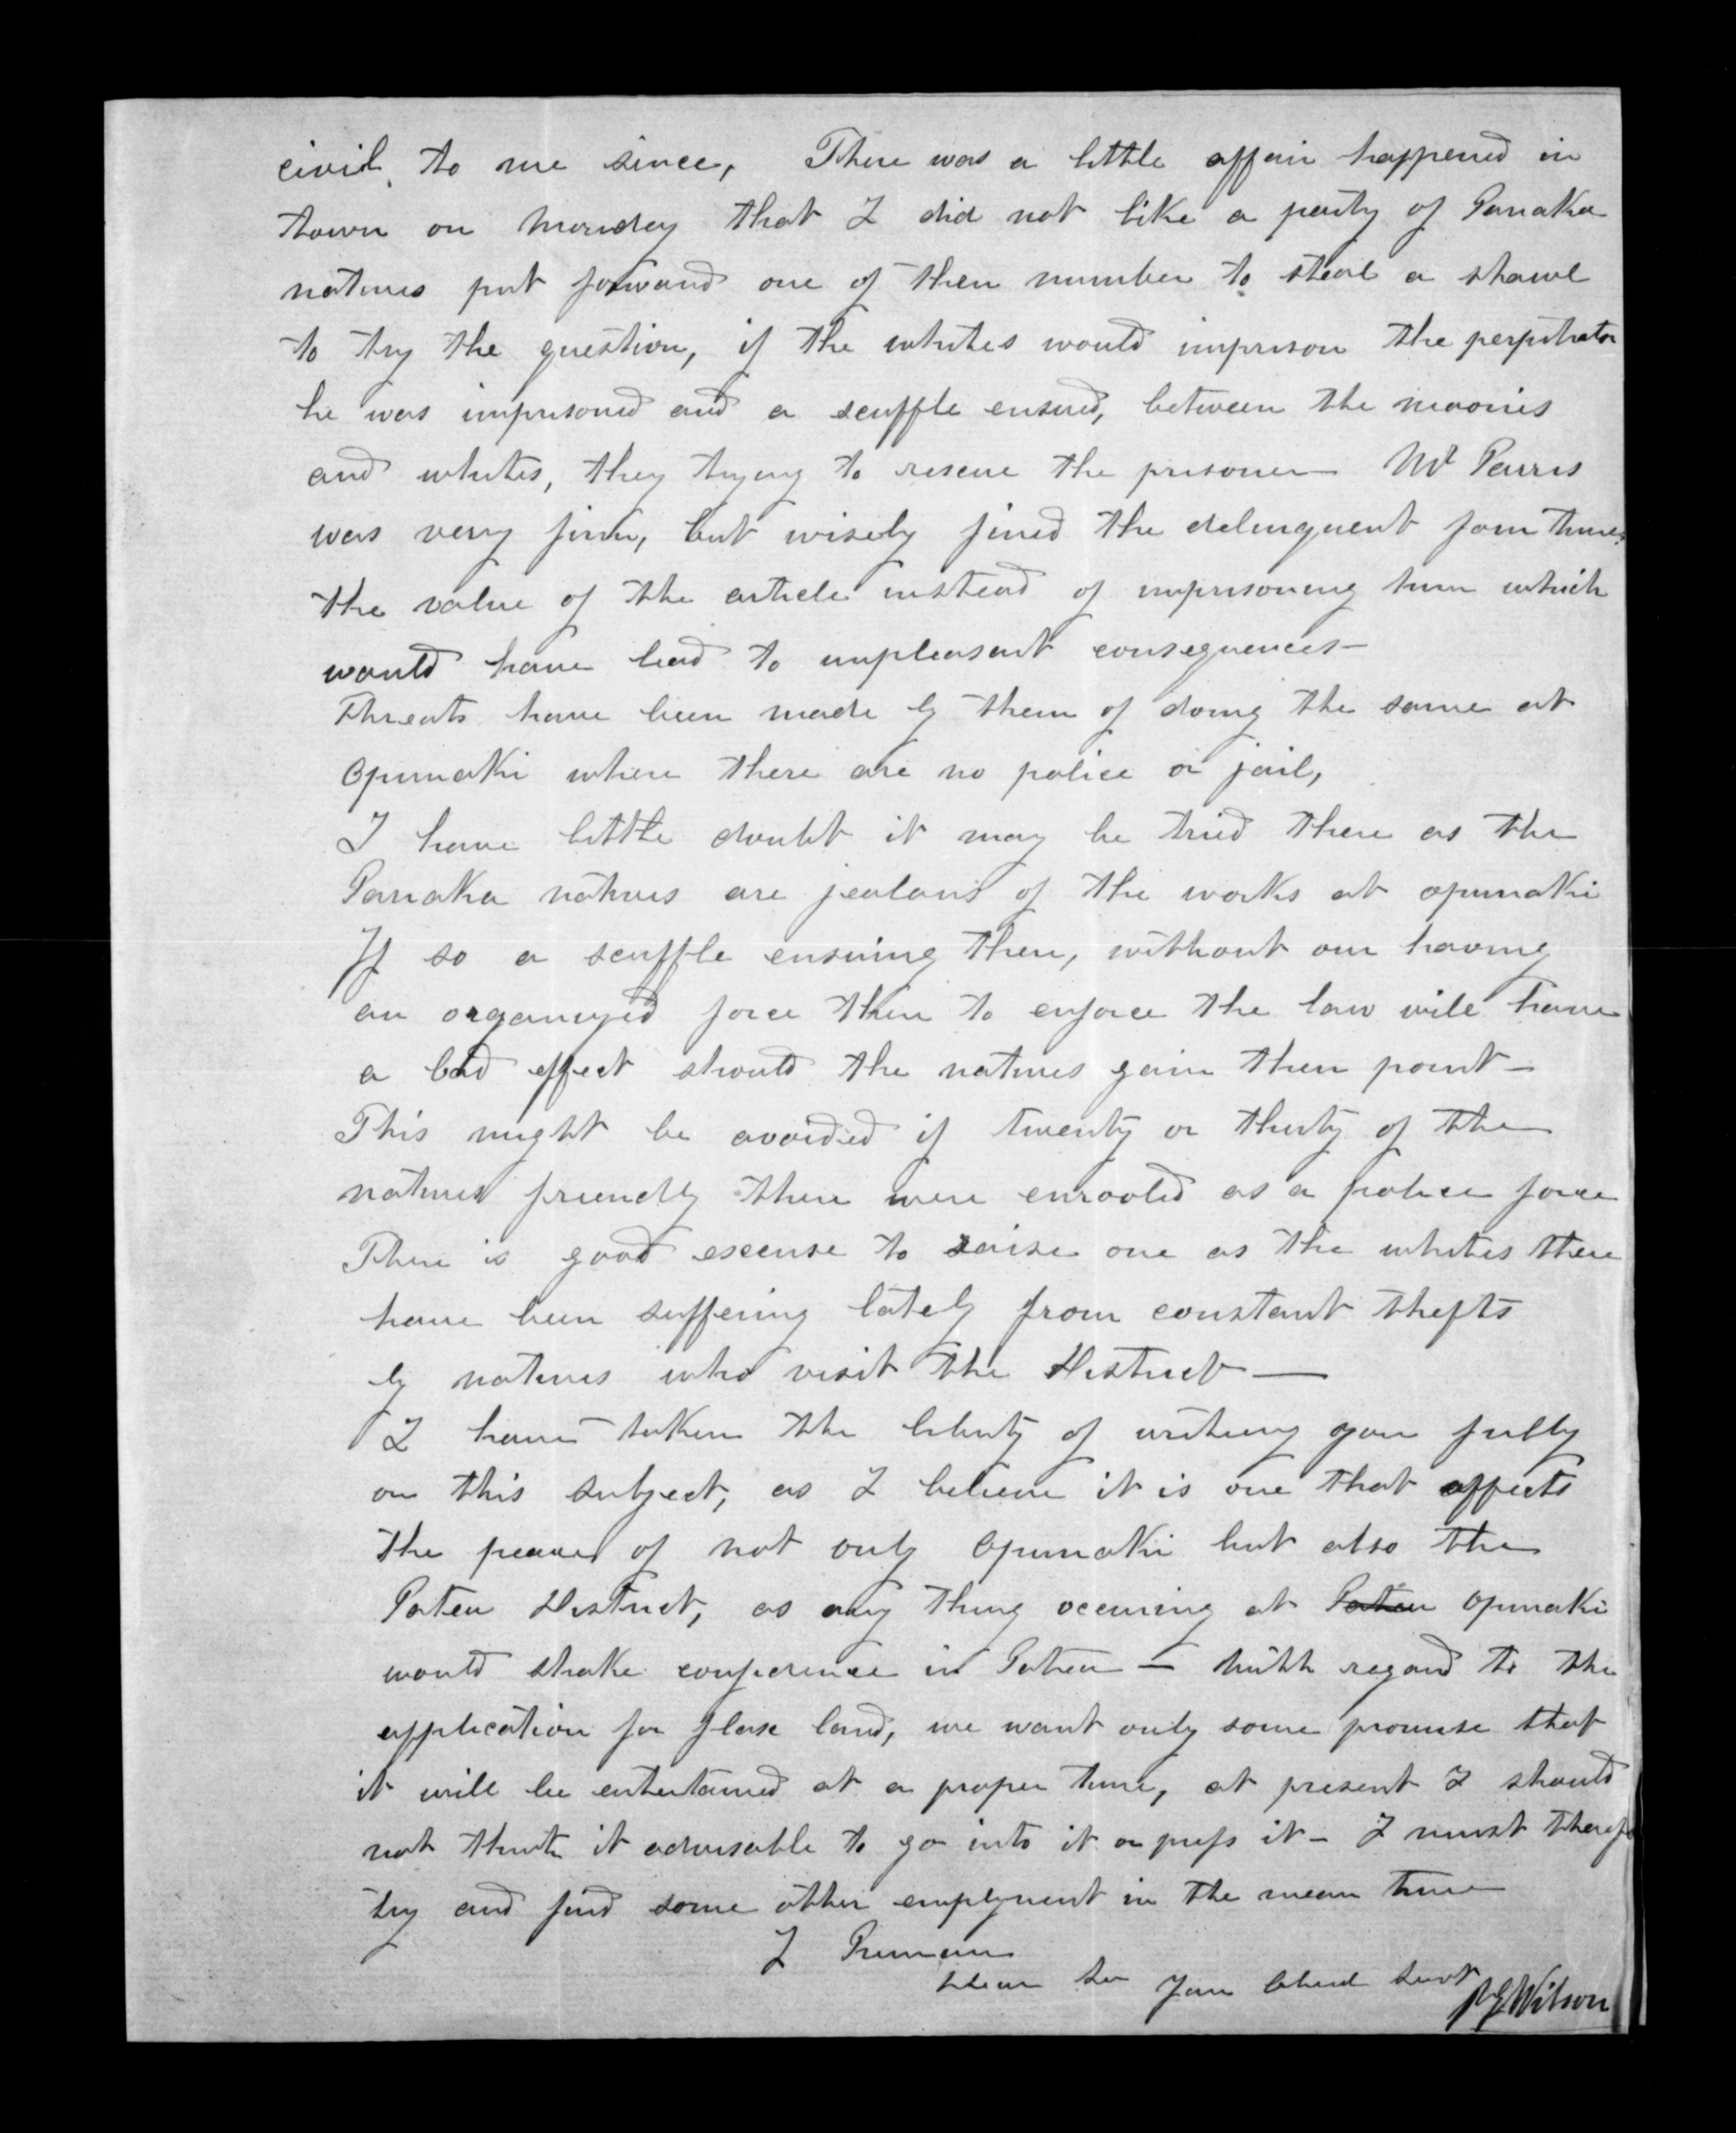 civil to me since, There was a little affair happened in
town on Monday that I did not like a party of Tanaka
natives put forward one of their number to steal a shawl
to try the question, if the whites would imprison the perpitrator
he was imprisoned and a scuffle ensued, between the maories
and whites, they trying to rescue the prisoner — Mr Parris
was very firm, but wisely fined the delinquent four times
the value of the article instead of imprisoning him which
would have lead to unpleasant consequences —
Threats have been made by them of doing the same at
Opunaki where there are no police or jail,
I have little doubt it may be tried there as the
Tanaka natives are jealous of the works at opunaki
If so a scuffle ensuing there, without our having
an organized force there to enforce the law will have
a bad effect should the natives gain their point —
This might be avoided if twenty or thirty of the
natives friendly there were enrooled as a police force
There is good excuse to raise one as the whites there
have been suffering lately from constant thefts
by natives who visit the District —
I have taken the liberty of writing you fully
on this subject, as I believe it is one that affects
the peace of not only Opunaki but also the
Patea District, as any thing occuring at Patea Opunaki
would shake confidence in Patea — With regard to the
application for flax land, we want only some promise that
it will be entertained at a proper time, at present I should
not think it advisable to go into it or press it — I must therefore
try and find some other employment in the mean time
I Remain
Dear Sir Your Obend Servt
Wilson